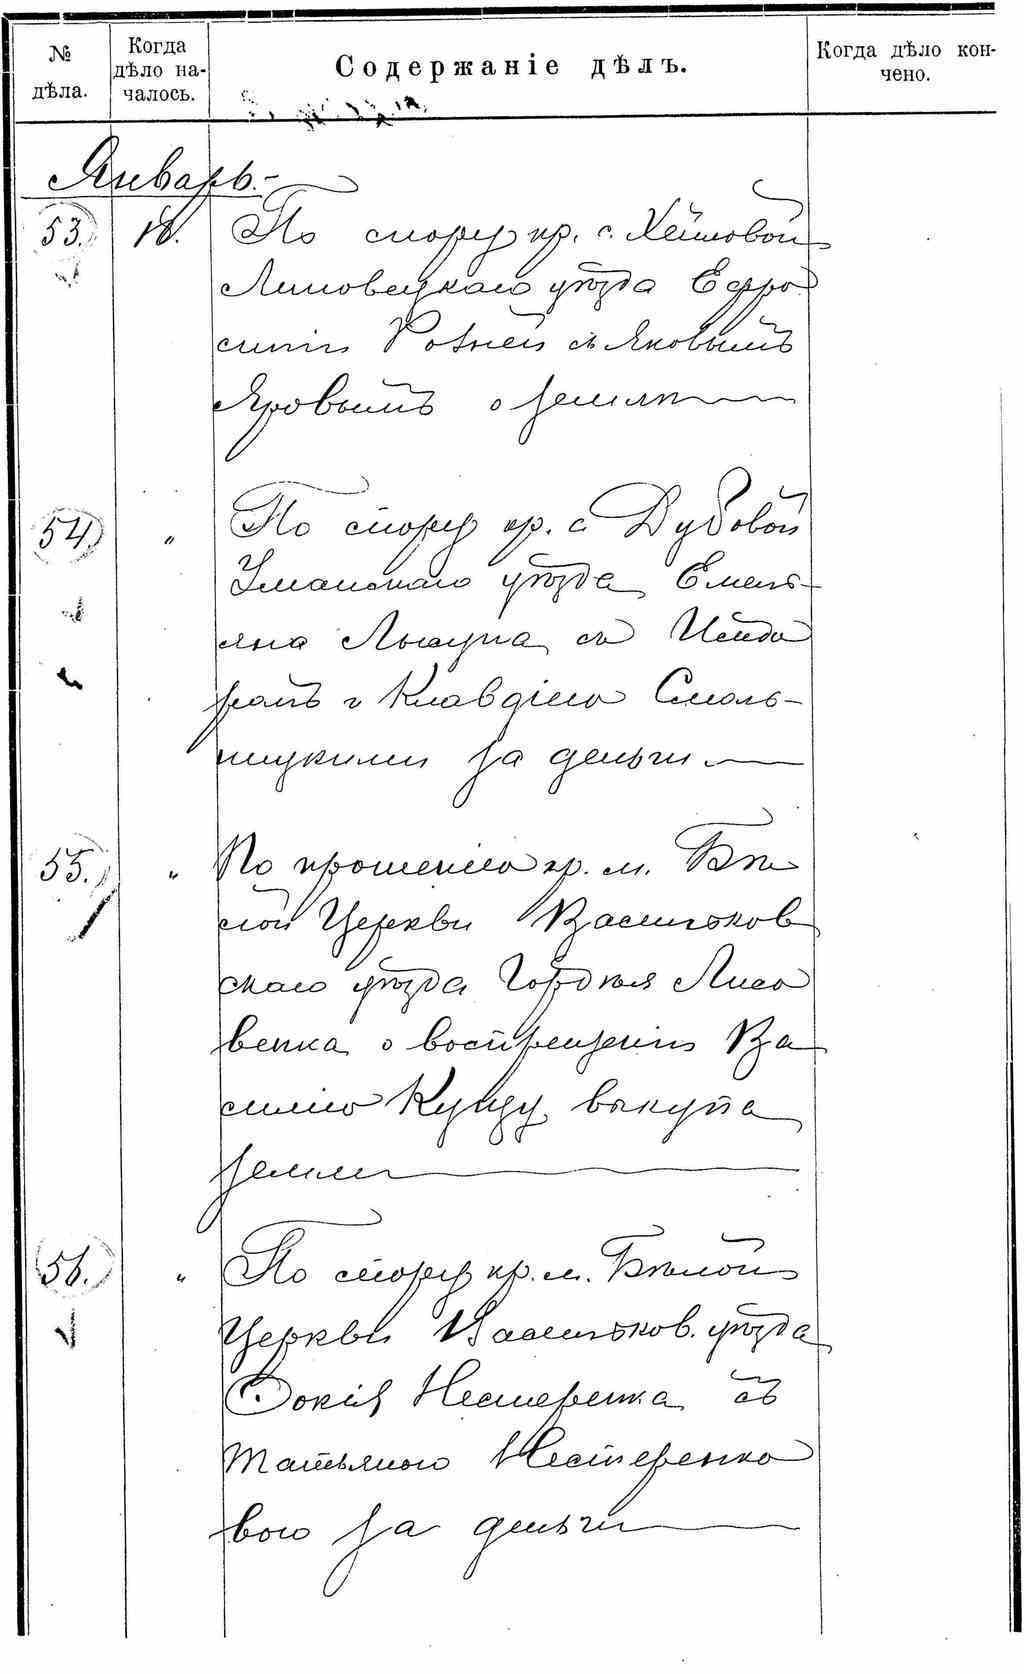 № дѣла.
Когда дѣло на-
чалось.
Содержаніе дѣлъ.
Когда дѣло кон-
чено.
Январь.-
53. 18. По спору кр. с. Хейловой
Липовецкаго уѣзда Ефро
синіи съ Яковымъ
Яровымъ о землѣ
54. " По спору кр. с Дубовой
Уманскаго уѣзда Емель-
яна съ Исидо
ромъ и Клавдіею Смоль-
ницкими за деньги
55. " По прошенію кр. м. Бѣ
лой Церкви Васильков
скаго уѣзда Гордѣя Лисо
венка о воспрещеніи Ва
силію выкупа
земли
56. " По спору кр. м. Бѣлой
Церкви Васильков. уѣзда
Фокія Нестеренка съ
Татьяною Нестеренко
вою за деньги